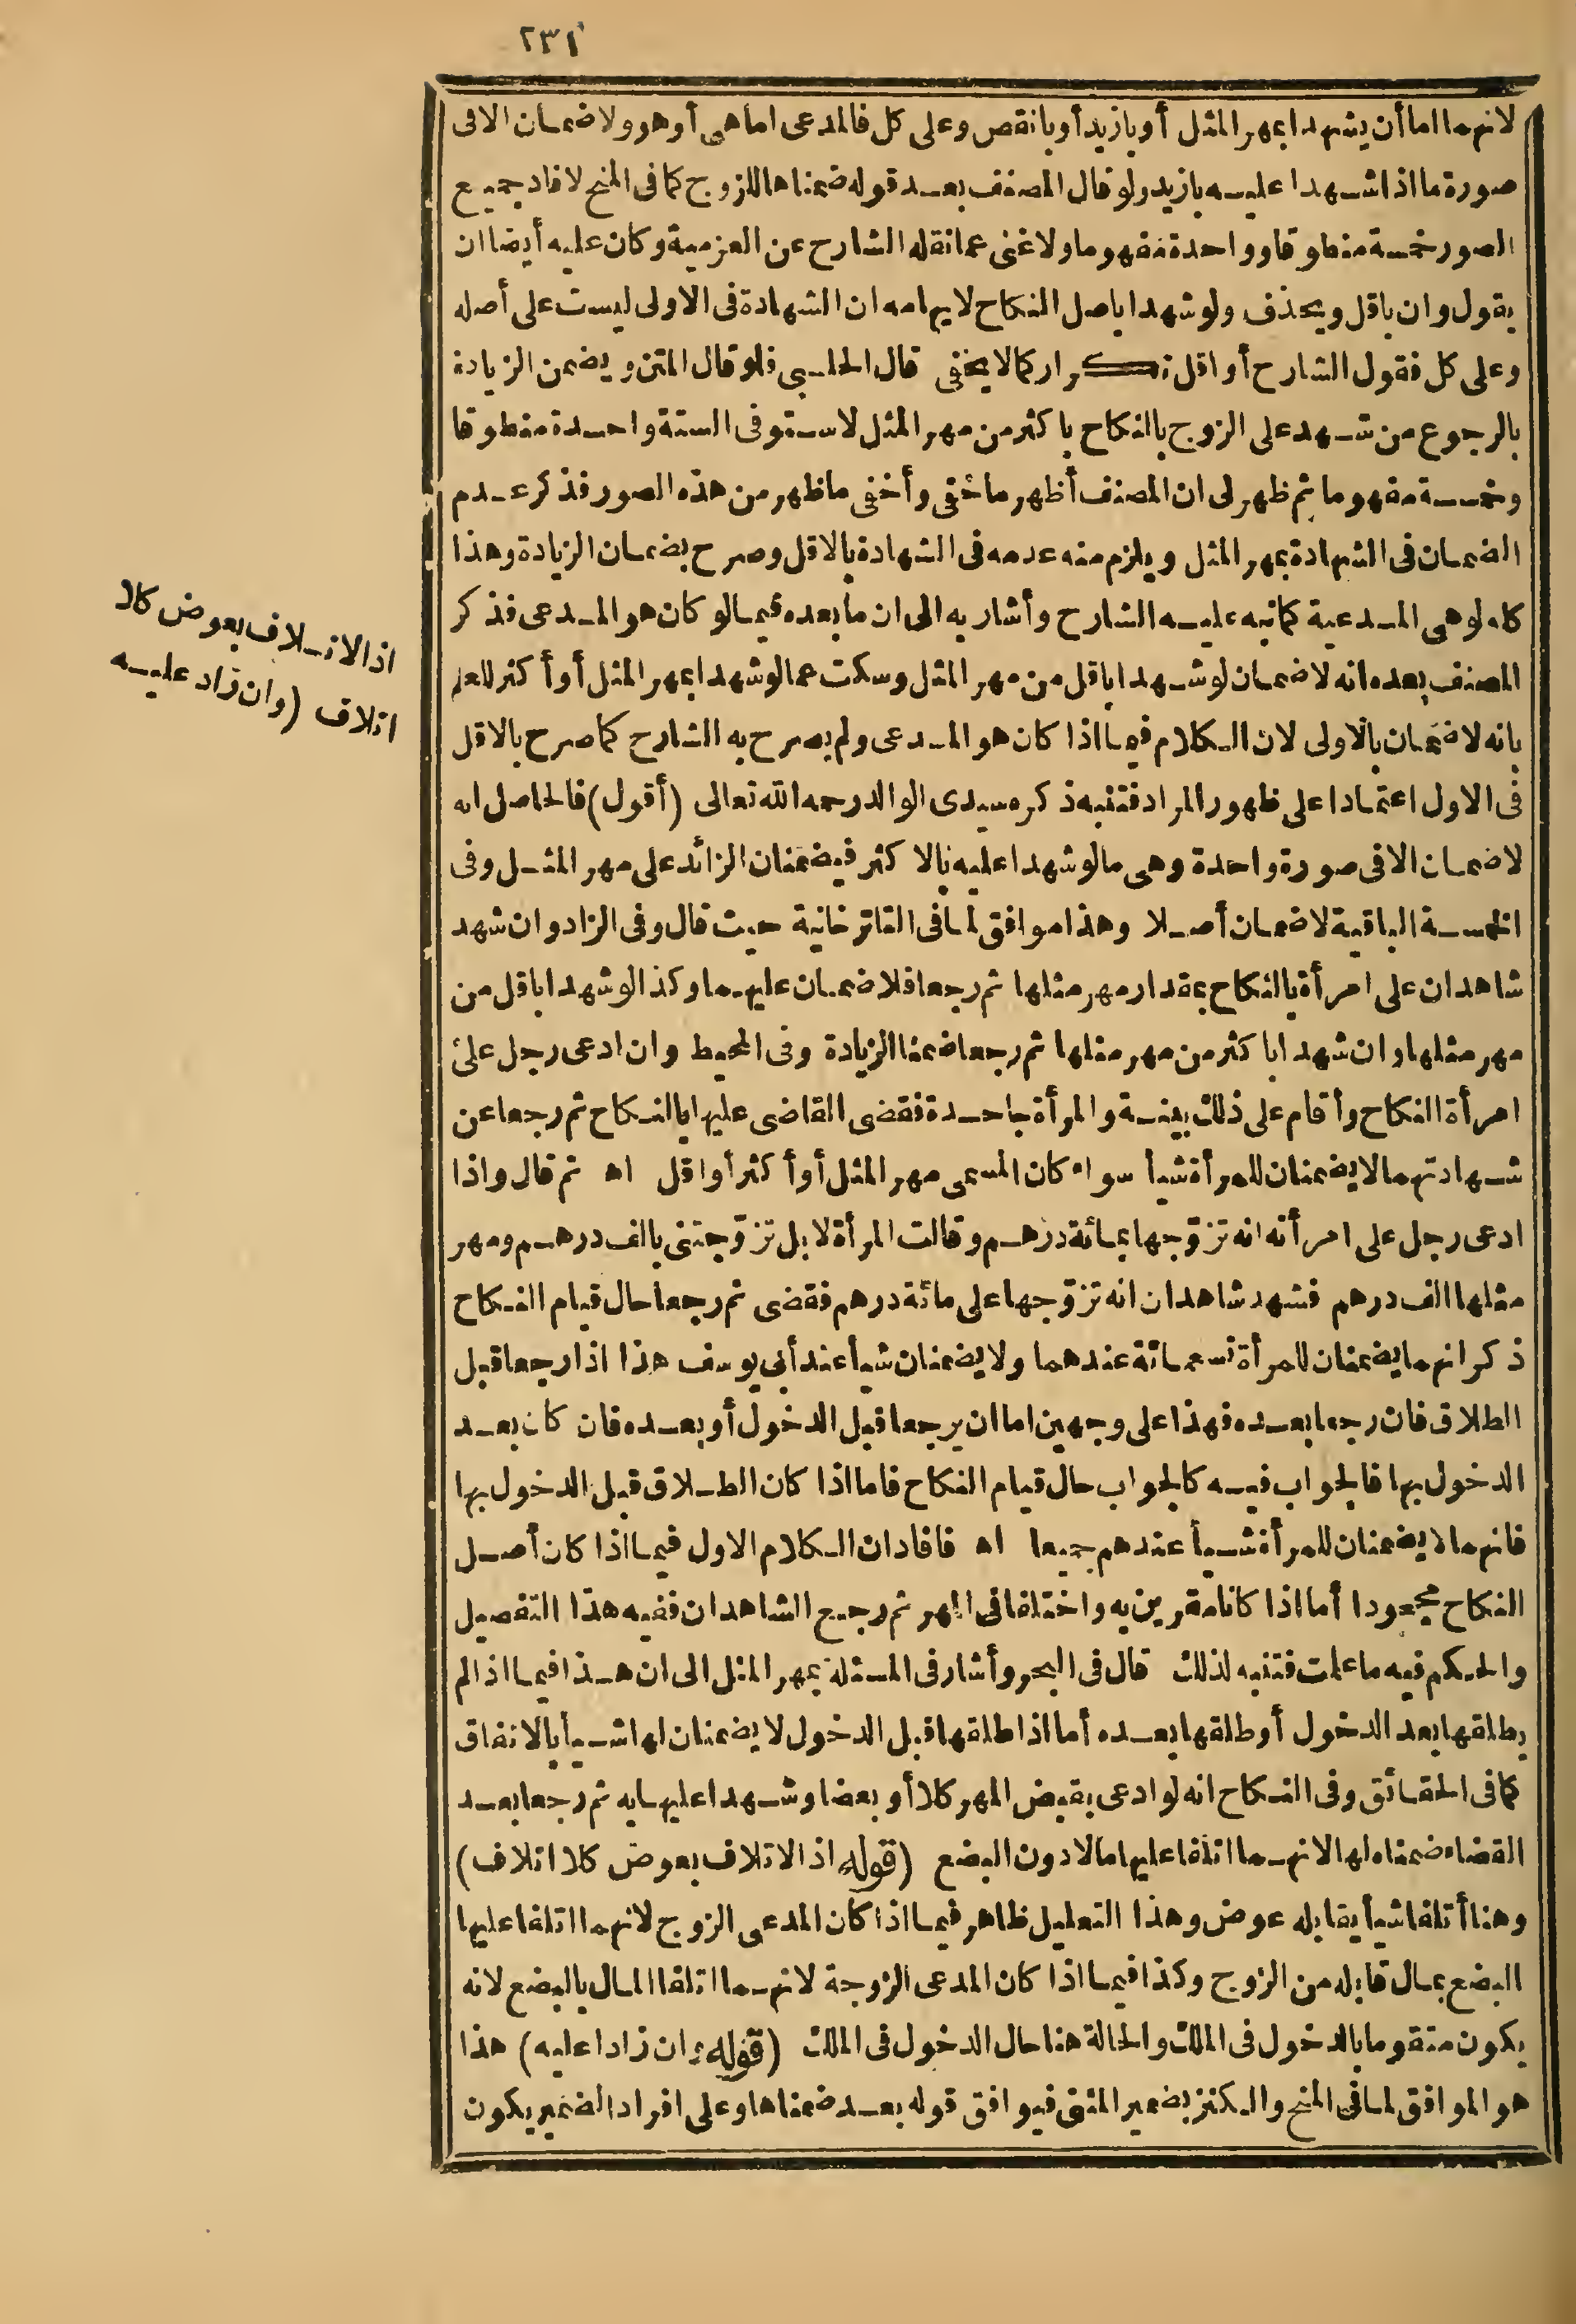 ٢٣١
لانهما اما أن يشهدا بمهر المثل أو بازيد أو بانقص وعلى كل فالمدعى اما هى أو هو ولا ضمان الا فى
صورة ما اذا شهدا عليه بازيد ولو قال المصنف بعد قوله ضمناها للزوج كما فى المنح لافاد جميع
الصور خمسة منطوقا وواحدة مفهوما ولاغنى عما نقله الشارح عن العزمية وكان عليه أيضا ان
يقول وان باقل ويحذف ولو شهدا باصل النكاح لايهامه ان الشهادة فى الاولى ليست على أصله
وعلى كل فقول الشارح أو اقل تكرار كما لا يخفى قال الحلبى فلو قال المتن ويضمن الزيادة
بالرجوع من شهد على الزوج بالنكاح باكثر من مهر المثل لاستوفى الستة واحدة منطوقا
وخمسة مفهوما ثم ظهر لى ان المصنف أظهر ما خفى وأخفى ما ظهر من هذه الصور فذكر عدم
الضمان فى الشهادة بمهر المثل ويلزم منه عدمه فى الشهادة بالاقل وصرح بضمان الزيادة وهذا
كله لو هى المدعية كما نبه عليه الشارح وأشار به الى ان ما بعده فيما لو كان هو المدعى فذكر
المصنف بعده انه لا ضمان لو شهدا باقل من مهر المثل وسكت عما لو شهدا بمهر المثل أو أكثر للعلم
بانه لا ضمان بالاولى لان الكلام فيما اذا كان هو المدعى ولم يصرح به الشارح كما صرح بالاقل
فى الاول اعتمادا على ظهور المراد فتنبه ذكره سيدى الوالد رحمه الله تعالى (أقول) فالحاصل انه
لا ضمان الا فى صورة واحدة وهى ما لو شهدا عليه بالاكثر فيضمنان الزائد على مهر المثل وفى
الخمسة الباقية لا ضمان أصلا وهذا موافق لما فى التاترخانية حيث قال وفى الزاد وان شهد
شاهدان على امرأة بالنكاح بمقدار مهر مثلها ثم رجعا فلا ضمان عليهما وكذا لو شهدا باقل من
مهر مثلها وان شهدا باكثر من مهر مثلها ثم رجعا ضمنا الزيادة وفى المحيط وان ادعى رجل على
امرأة النكاح وأقام على ذلك بينة والمرأة جاحدة فقضى القاضى عليها بالنكاح ثم رجعا عن
شهادتهما لا يضمنان للمرأة شيأ سواء كان المسمى مهر المثل أو أكثر أو اقل اه ثم قال واذا
ادعى رجل على امرأته انه تزوجها بمائة درهم وقالت المرأة لا بل تزوجتنى بالف درهم ومهر
مثلها الف درهم فشهد شاهدان انه تزوجها على مائة درهم فقضى ثم رجعا حال قيام النكاح
ذكر انهما يضمنان للمرأة تسعمائة عندهما ولا يضمنان شيأ عند أبى يوسف هذا اذا رجعا قبل
الطلاق فان رجعا بعده فهذا على وجهين اما ان يرجعا قبل الدخول أو بعده فان كان بعد
الدخول بها فالجواب فيه كالجواب حال قيام النكاح فاما اذا كان الطلاق قبل الدخول بها
فانهما لا يضمنان للمرأة شيأ عندهم جميعا اه فافاد ان الكلام الاول فيما اذا كان أصل
النكاح مجحودا أما اذا كانا مقرين به واختلفا فى المهر ثم رجع الشاهدان ففيه هذا التفصيل
والحكم فيه ما علمت فتنبه لذلك قال فى البحر وأشار فى المسئلة بمهر المثل الى ان هذا فيما اذا لم
يطلقها بعد الدخول أو طلقها بعده أما اذا طلقها قبل الدخول لا يضمنان لها شيأ بالاتفاق
كما فى الحقائق وفى النكاح انه لو ادعى بقبض المهر كلا أو بعضا وشهدا عليها به ثم رجعا بعد
القضاء ضمناه لها لانهما اتلفا عليها مالا دون البضع (قوله اذ الاتلاف بعوض كلا اتلاف)
وهنا أتلفا شيأ يقابله عوض وهذا التعليل ظاهر فيما اذا كان المدعى الزوج لانهما اتلفا عليها
البضع بمال قابله من الزوج وكذا فيما اذا كان المدعى الزوجة لانهما اتلفا المال بالبضع لانه
يكون متقوما بالدخول فى الملك والحالة هنا حال الدخول فى الملك (قوله وان زادا عليه) هذا
هو الموافق لما فى المنح والكنز بضمير المثنى فيوافق قوله بعد ضمناها وعلى افراد الضمير يكون
اذ الاتلاف بعوض كلا
اتلاف (وان زاد عليه